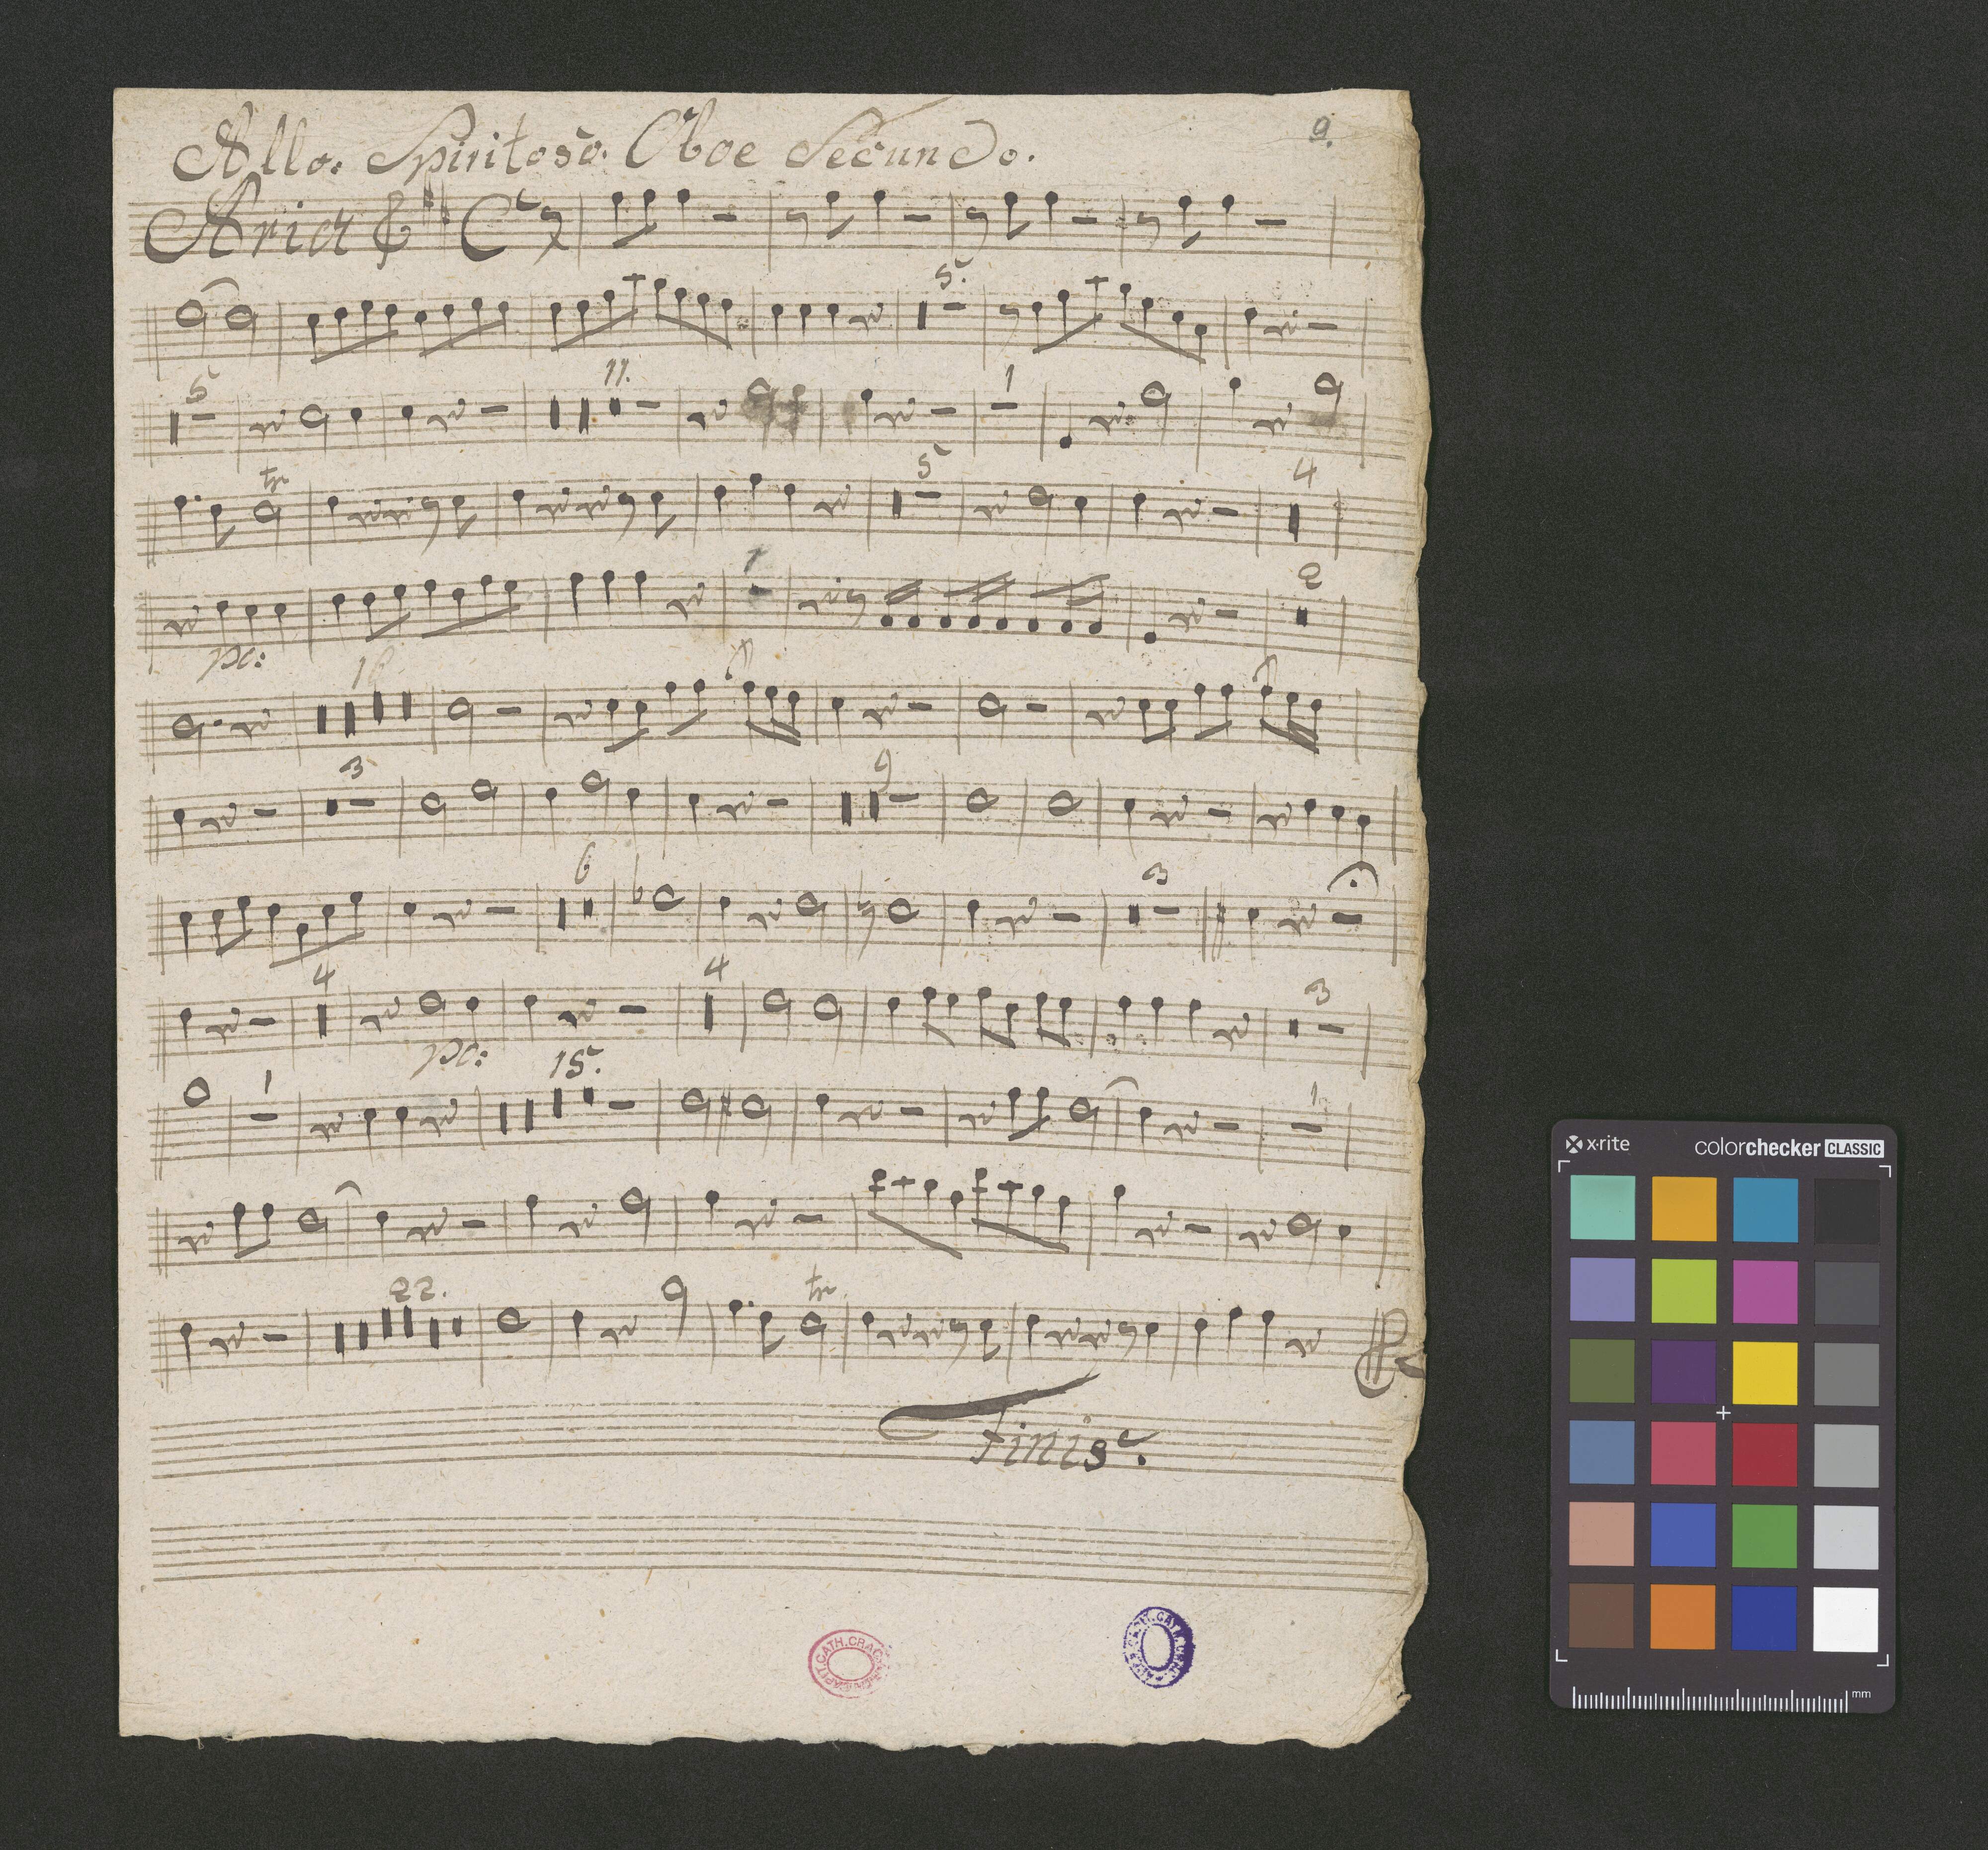 Allo. Spiritoso. Oboe Secundo. 9.
Aria C
5.
5 11. 1
tr 5 4
1 2
po:
3 9
6 3
4 4 3
po: 15.
1 1
22. tr
Finis.
CATH.CRAC
x-rite colorchecker CLASSIC
mm